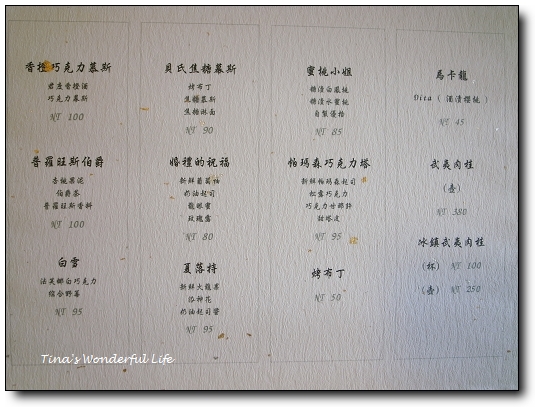 香橙巧克力慕斯
君度香橙酒
巧克力慕斯
NT 100
普羅旺斯伯爵
杏桃果泥
伯爵茶
普羅旺斯香料
NT 100
白雪
法芙娜白巧克力
綜合野莓
NT 95
貝氏焦糖慕斯
烤布丁
焦糖慕斯
焦糖淋面
NT 90
婚禮的祝福
新鮮葡萄柚
奶油起司
龍眼蜜
玫瑰露
NT 80
夏洛特
新鮮火龍果
洛神花
奶油起司醬
NT 95
蜜桃小姐
糖漬白鳳桃
糖漬水蜜桃
自製優格
NT 85
帕瑪森巧克力塔
新鮮帕瑪森起司
松露巧克力
巧克力甘那許
甜塔皮
NT 95
烤布丁
NT 50
馬卡龍
Oita ( 酒漬櫻桃 )
NT 45
武夷肉桂
(壺)
NT 380
冰鎮武夷肉桂
(杯) NT 100
(壺) NT 250
Tina's Wonderful Life